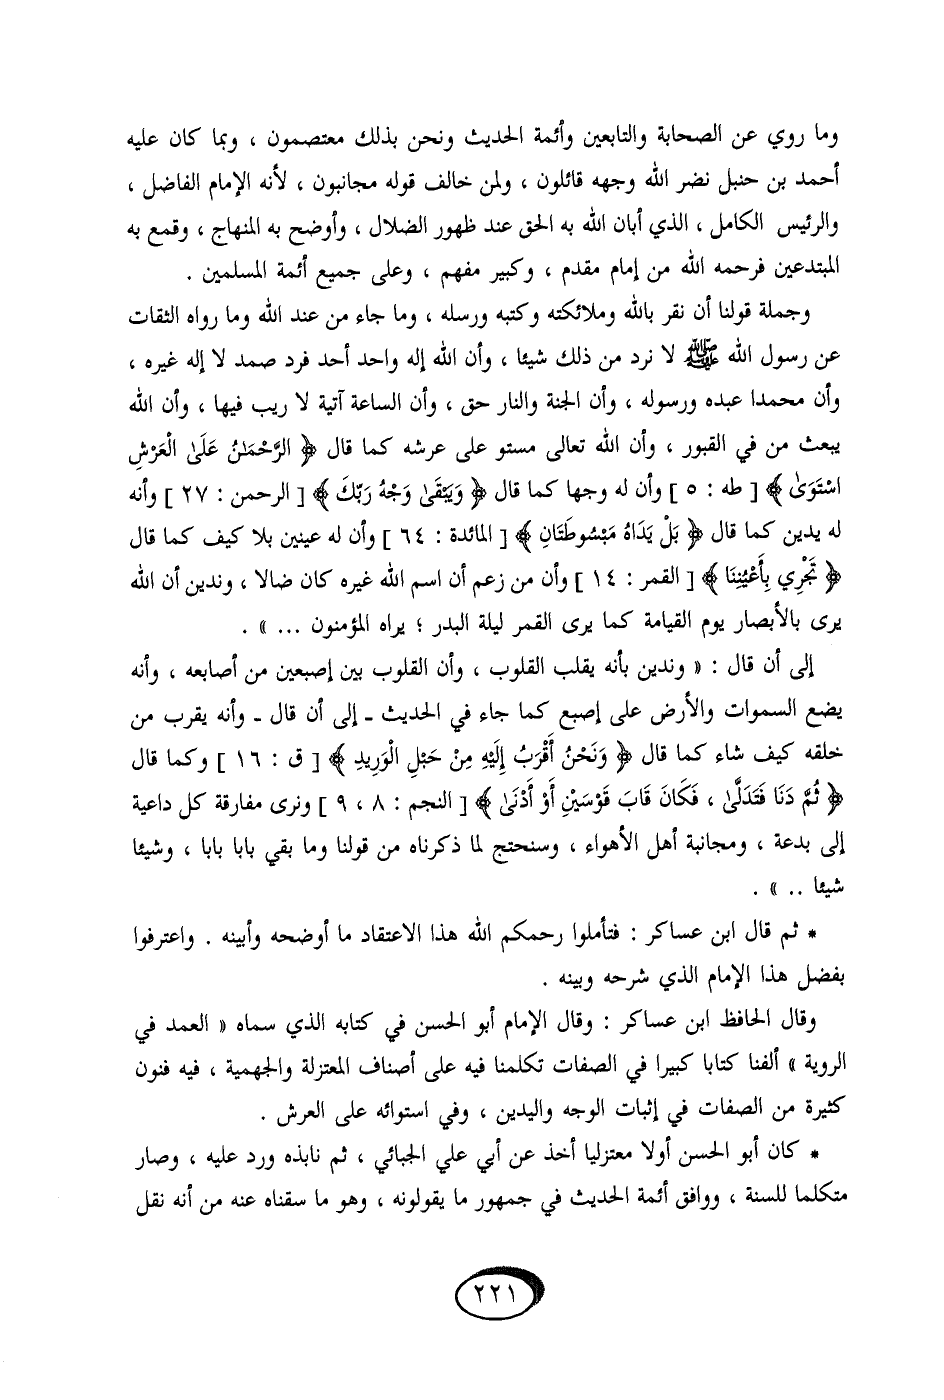 وما روي عن الصحابة والتابعين وأئمة الحديث ونحن بذلك معتصمون ، وبما كان عليه
أحمد بن حنبل نضر الله وجهه قائلون ، ولمن خالف قوله مجانبون ، لأنه الإمام الفاضل ،
والرئيس الكامل ، الذي أبان الله به الحق عند ظهور الضلال ، وأوضح به المنهاج ، وقمع به
المبتدعين فرحمه الله من إمام مقدم ، وكبير مفهم ، وعلى جميع أئمة المسلمين .
وجملة قولنا أن نقر بالله وملائكته وكتبه ورسله ، وما جاء من عند الله وما رواه الثقات
عن رسول الله ﷺ لا نرد من ذلك شيئا ، وأن الله إله واحد أحد فرد صمد لا إله غيره ،
وأن محمدا عبده ورسوله ، وأن الجنة والنار حق ، وأن الساعة آتية لا ريب فيها ، وأن الله
يبعث من في القبور ، وأن الله تعالى مستو على عرشه كما قال ﴿ الرَّحْمَٰنُ عَلَىٰ الْعَرْشِ
اسْتَوَىٰ ﴾ [ طه : ٥ ] وأن له وجها كما قال ﴿ وَيَبْقَىٰ وَجْهُ رَبِّكَ ﴾ [ الرحمن : ٢٧ ] وأنه
له يدين كما قال ﴿ بَلْ يَدَاهُ مَبْسُوطَتَانِ ﴾ [ المائدة : ٦٤ ] وأن له عينين بلا كيف كما قال
﴿ تَجْرِي بِأَعْيُنِنَا ﴾ [ القمر : ١٤ ] وأن من زعم أن اسم الله غيره كان ضالا ، وندين أن الله
يرى بالأبصار يوم القيامة كما يرى القمر ليلة البدر ؛ يراه المؤمنون ... » .
إلى أن قال : « وندين بأنه يقلب القلوب ، وأن القلوب بين إصبعين من أصابعه ، وأنه
يضع السموات والأرض على إصبع كما جاء في الحديث ـ إلى أن قال ـ وأنه يقرب من
خلقه كيف شاء كما قال ﴿ وَنَحْنُ أَقْرَبُ إِلَيْهِ مِنْ حَبْلِ الْوَرِيدِ ﴾ [ ق : ١٦ ] وكما قال
﴿ ثُمَّ دَنَا فَتَدَلَّىٰ ، فَكَانَ قَابَ قَوْسَيْنِ أَوْ أَدْنَىٰ ﴾ [ النجم : ٨ ، ٩ ] ونرى مفارقة كل داعية
إلى بدعة ، ومجانبة أهل الأهواء ، وسنحتج لما ذكرناه من قولنا وما بقي بابا بابا ، وشيئا
شيئا .. » .
* ثم قال ابن عساكر : فتأملوا رحمكم الله هذا الاعتقاد ما أوضحه وأبينه . واعترفوا
بفضل هذا الإمام الذي شرحه وبينه .
وقال الحافظ ابن عساكر : وقال الإمام أبو الحسن في كتابه الذي سماه « العمد في
الروية » ألفنا كتابا كبيرا في الصفات تكلمنا فيه على أصناف المعتزلة والجهمية ، فيه فنون
كثيرة من الصفات في إثبات الوجه واليدين ، وفي استوائه على العرش .
* كان أبو الحسن أولا معتزليا أخذ عن أبي علي الجبائي ، ثم نابذه ورد عليه ، وصار
متكلما للسنة ، ووافق أئمة الحديث في جمهور ما يقولونه ، وهو ما سقناه عنه من أنه نقل
٢٢١